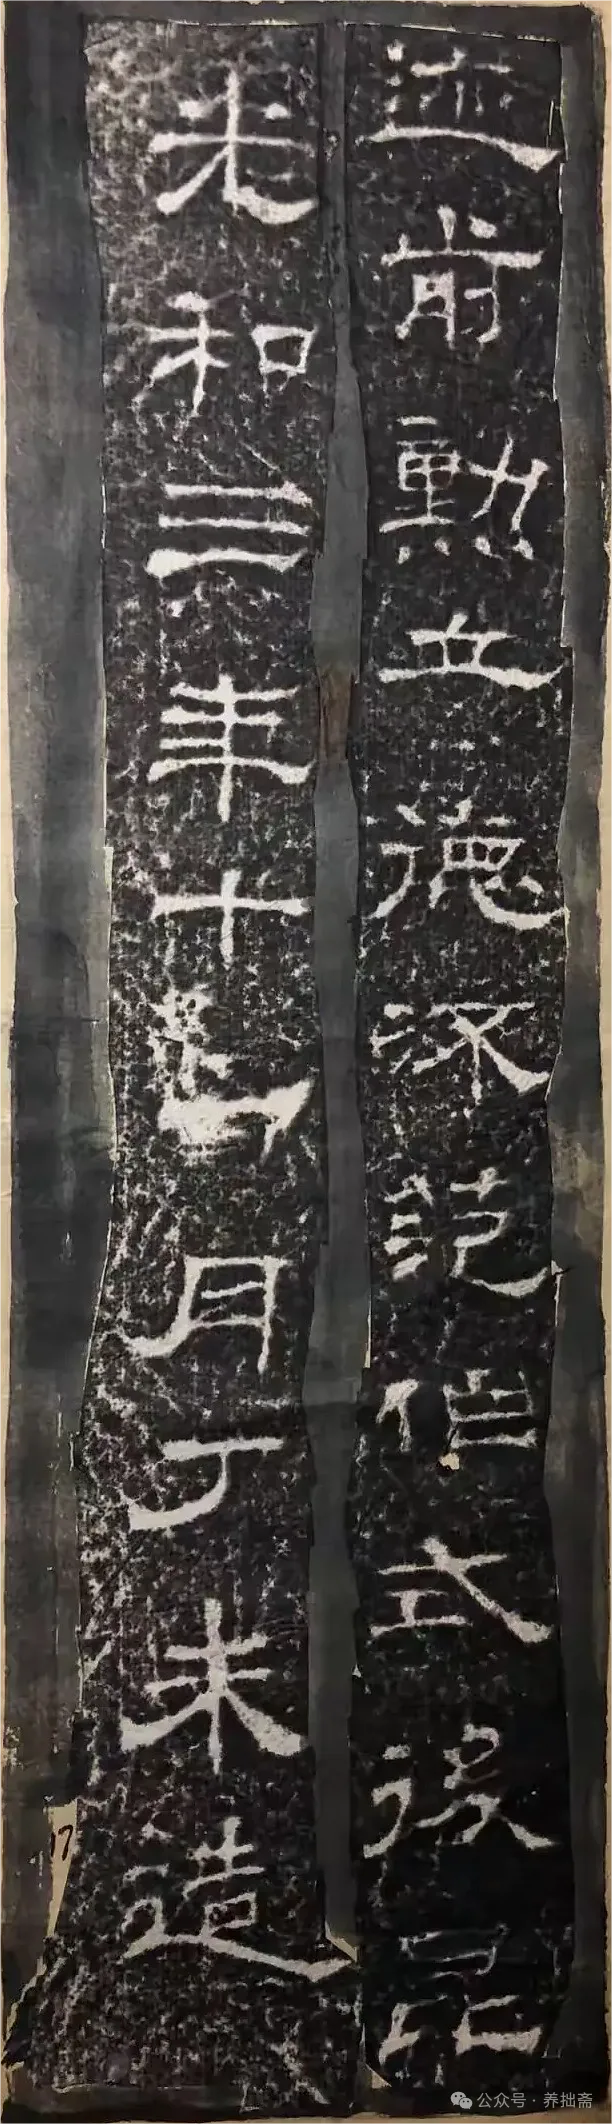 迹前勳立德流范作式後昆
光和三年十一月丁未造
17
公众号·养拙斋